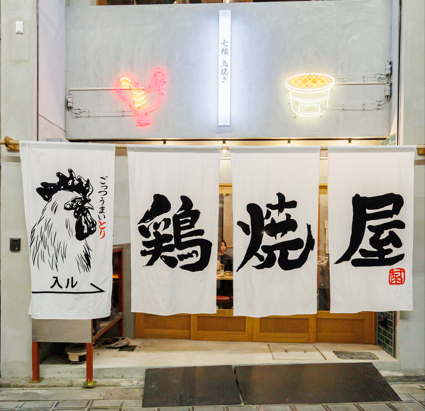 七輪 鳥焼き
ごっつうまいとり
入ル
鶏焼屋